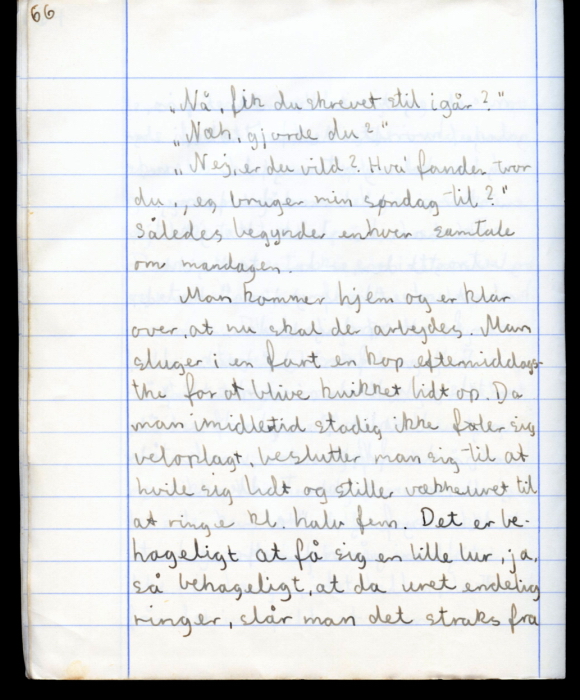 66
„Nå, fik du skrevet stil igår?"
„Næh, gjorde du?"
„Nej, er du vild? Hva' fanden tror
du, jeg bruger min søndag til?"
Således begynder enhver samtale
om mandagen.
Man kommer hjem og er klar
over, at nu skal der arbejdes. Man
sluger i en fart en kop eftermiddags-
the for at blive kvikket lidt op. Da
man imidletid stadig ikke føler sig
veloplagt, beslutter man sig til at
hvile sig lidt og stiller vækkeuret til
at ringe kl. halv fem. Det er be-
hageligt at få sig en lille lur, ja,
så behageligt, at da uret endelig
ringer, slår man det straks fra